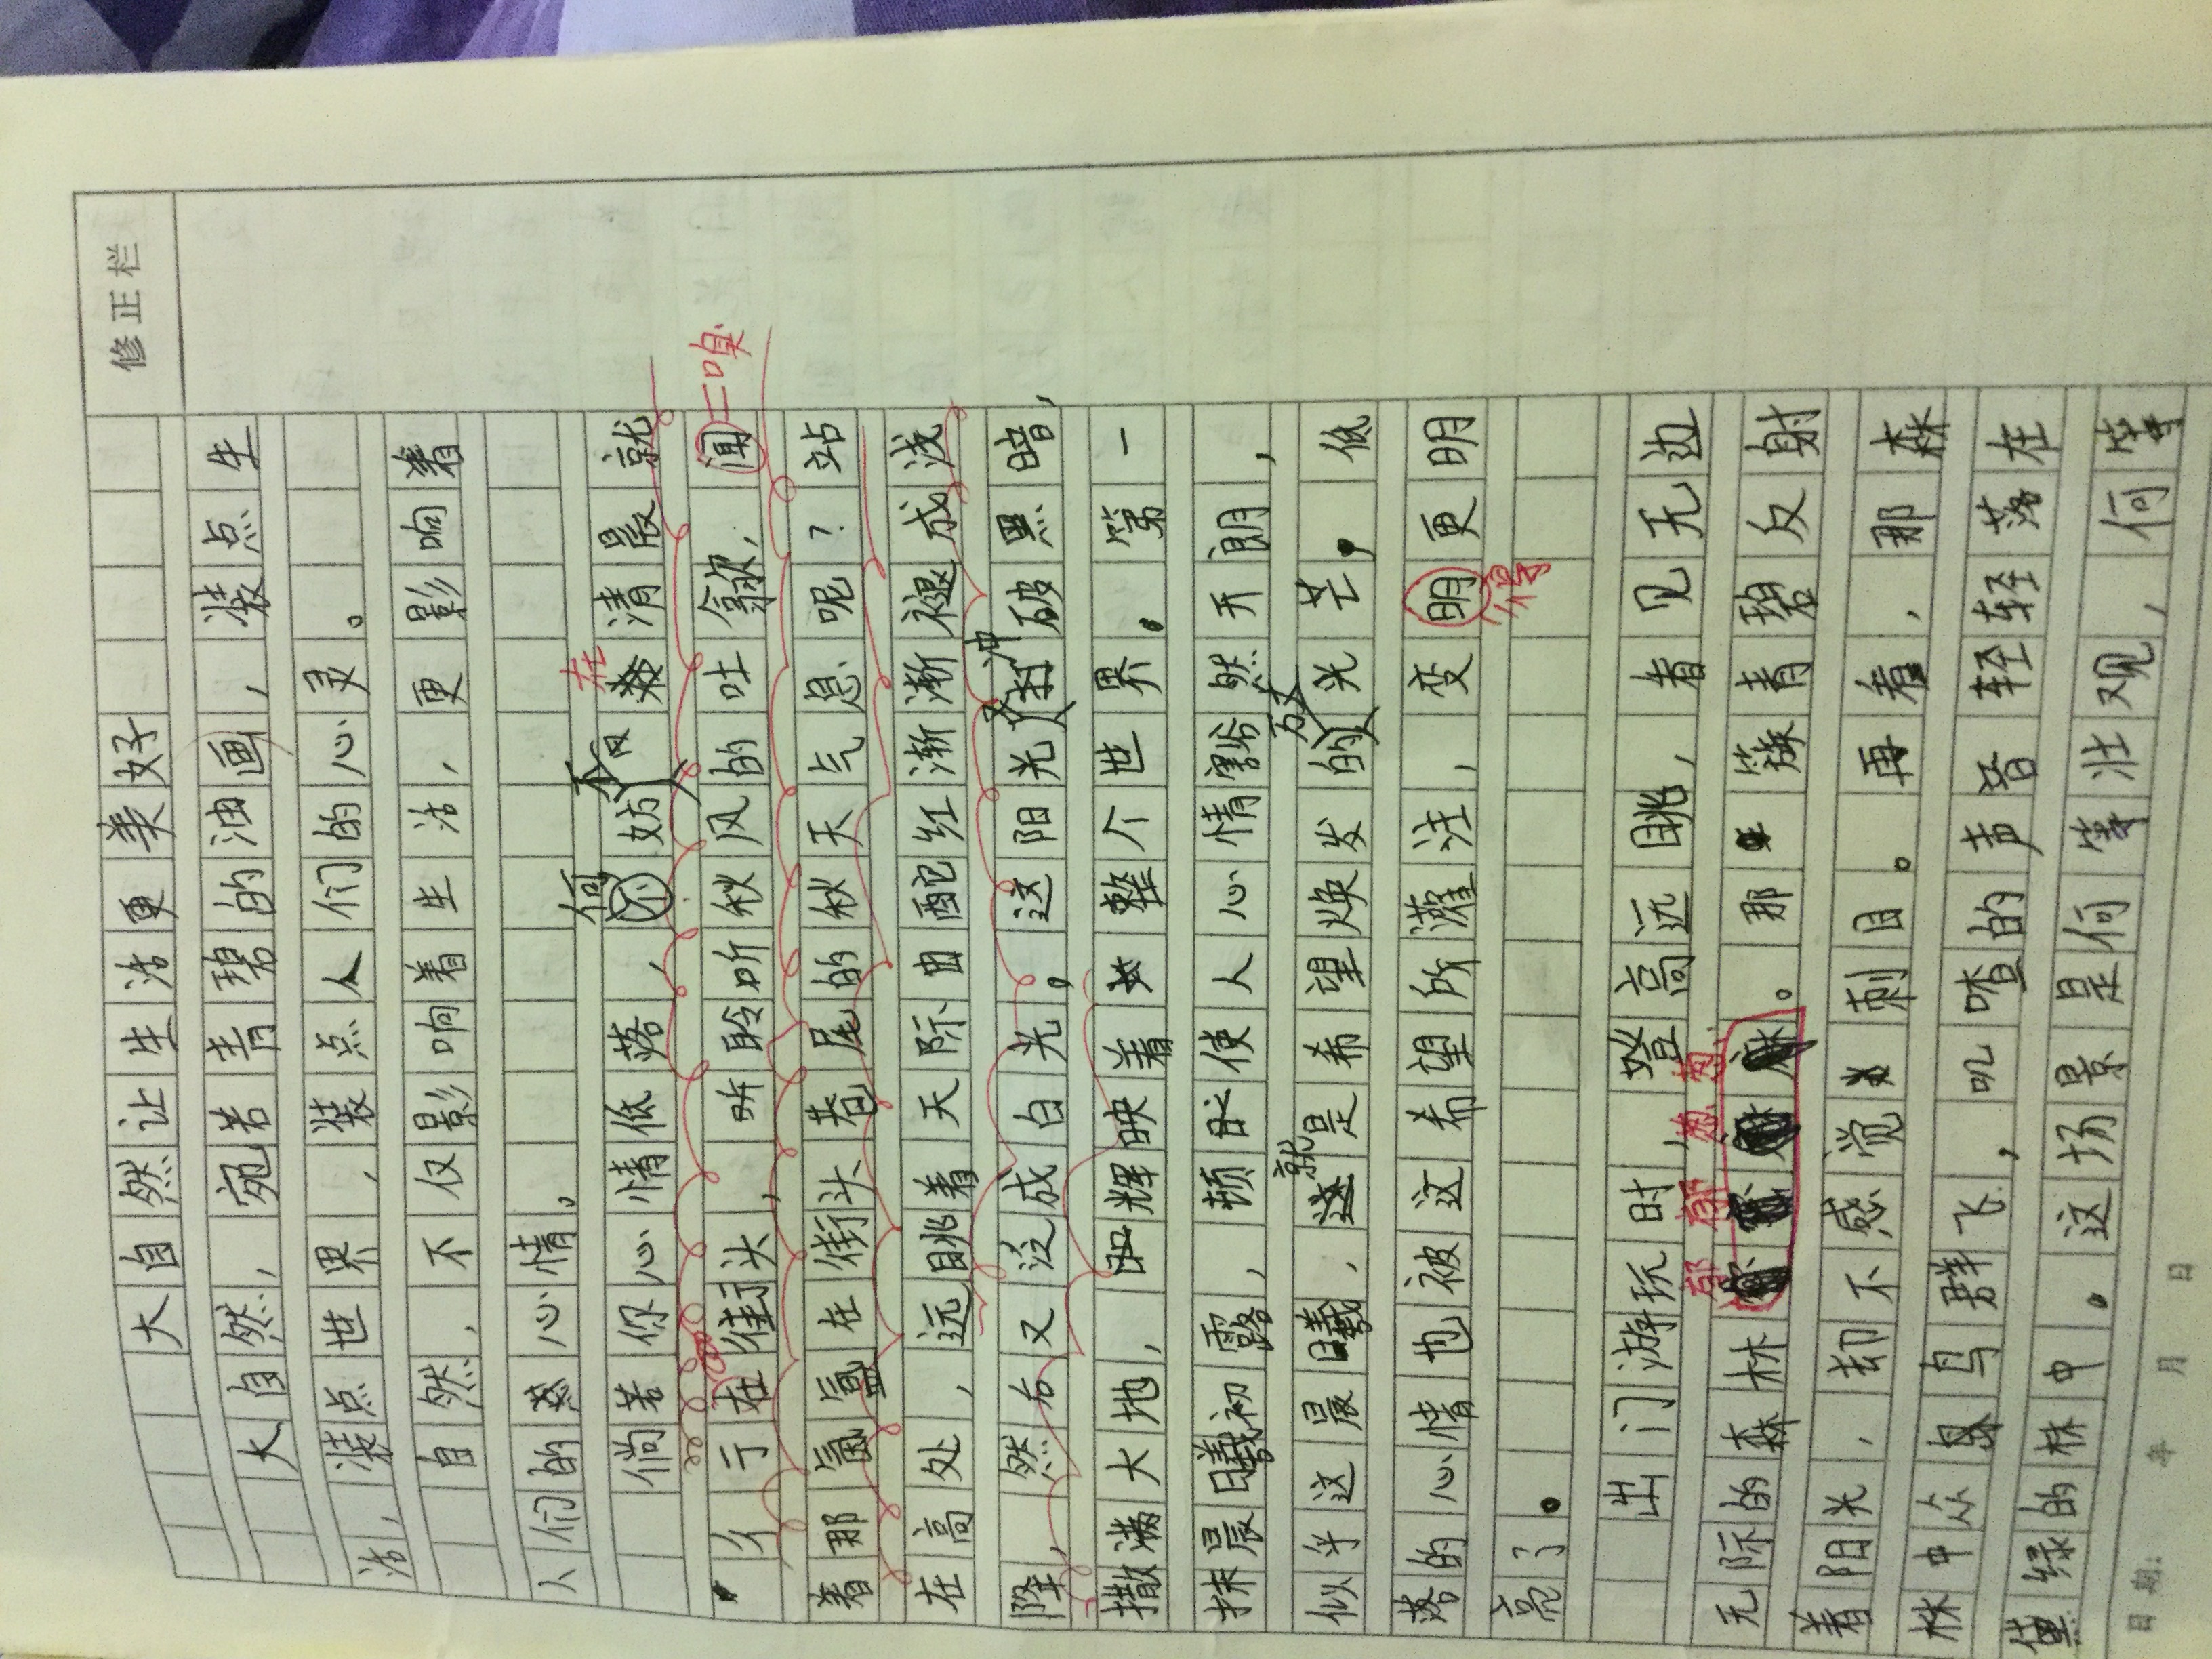 修正栏
大自然让生活更美好
大自然，宛若青碧的油画，装点生
活，装点世界，装点人们的心灵。
自然，不仅影响着生活，更影响着
人们的心情。
倘若你心情低落，何不妨在清晨就
彳亍在街头，听聆听秋风的吐翕，闻
二嗅
着那氤氲在街头巷尾的秋天气息呢？站
在高处，远眺着天际由酡红渐渐褪成浅
降，然后又泛成白光。这阳光又冲破黑暗，
撒满大地，辉映着整个世界。第一
抹晨曦初露，顿时使人心情豁然开朗，
似乎这晨曦，就是希望焕发的光芒，低
落的心情也被这希望所灌注，变明更明
得
亮了。
出门游玩时，登高远眺，看见无边
无际的森林郁郁葱葱。那簇青碧反射
着阳光，却不感觉刺目。再看，那森
林中众鸟群飞，叽喳的声音轻轻落在
黛绿的林中。这场景是何等壮观，何等
日期： 年 月 日